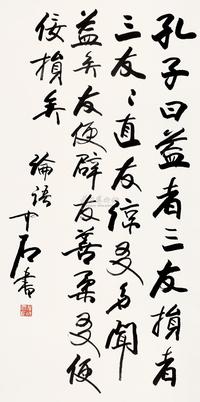 孔子曰益者三友損者
三友〻直友諒友多聞
益矣友便辟友善柔友便
佞損矣
論語 中石書